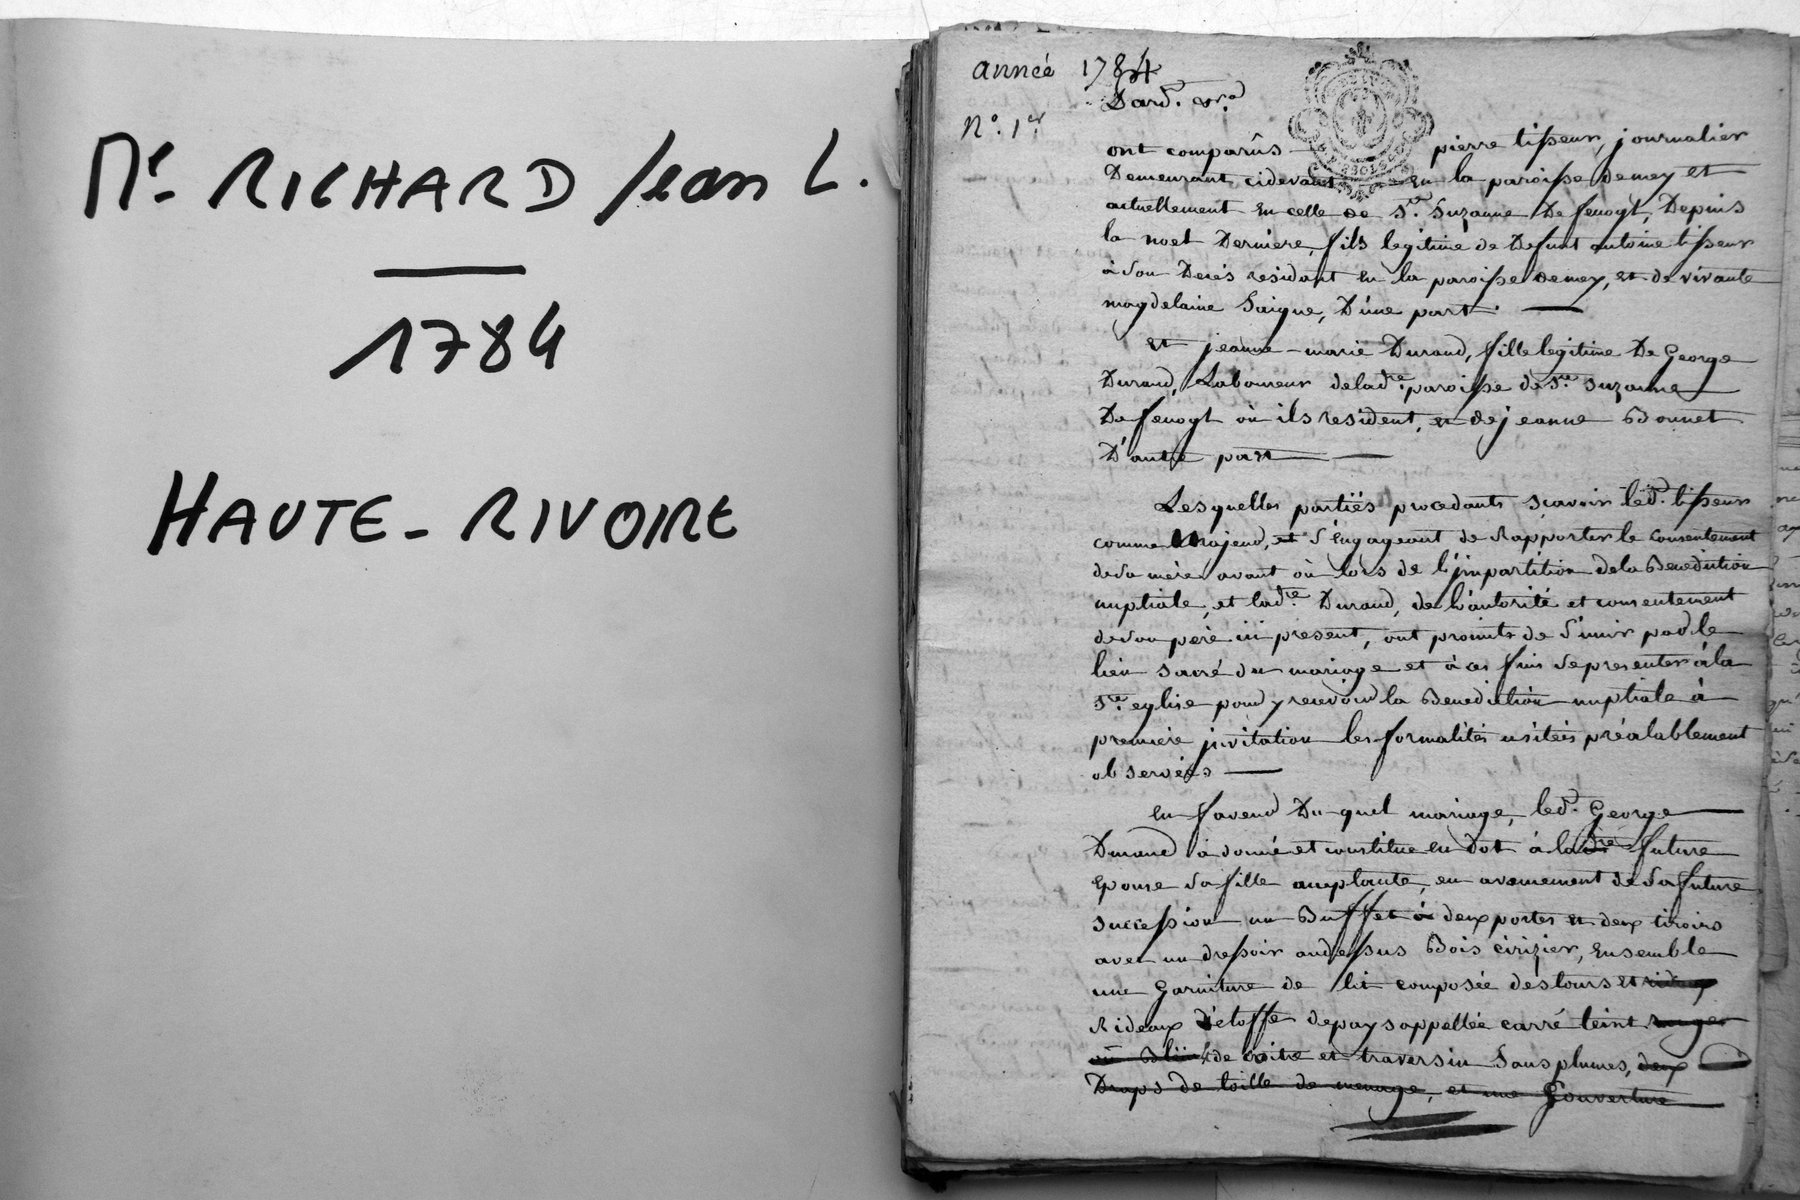 Me RICHARD Jean L.
1784
HAUTE-RIVOIRE
année 1784
Dard.
N°. 1er
ont comparûs pierre tisseur, journalier
Demeurant cidevant En la paroisse demey et
actuellement En celle de Ste. Suzanne De fenoyl, Depuis
la noel Derniere, fils legitime de Defunt antoine tisseur
à son Decés residant En la paroisse demey, et de vivante
magdelaine Saigne, D'une part.
Et jeanne-marie Durand, fille legitime De George
Durand, Laboureur deladte. paroisse de Ste. Suzanne
De fenoyl où ils resident, et dejeanne Bonnet
D'autre part
Lesquelles partiës procedants sçavoir led. tisseur
comme Majeur, et s'Engageant de Rapporter le consentement
desa mère avant où lors de l'jmpartition dela Benediction
nuptiale, et ladte. Durand, de l'autorité et consentement
deson pere ici present, ont promits de s'unir par le
lien sacré du mariage et à ces fins se presenter à la
Ste. eglise pour y recevoir la Benediction nuptiale à
premiere jnvitation les formalités usitées préalablement
observées
En faveur Du quel mariage, led. George
Durand à donné et constitue en Dot à ladte future
Epouse sa fille acceptante, en avancement de sa future
succession un Buffet à deux portes et deux tiroirs
avec un dressoir audessus Bois cirizier, Ensemble
une Garniture de lit composée destours et
Rideaux d'étoffe depays appellée carré teint rouge
où Bleü de coitre et traversin sans plumes, deux
Draps de toille de menage, et une Couverture